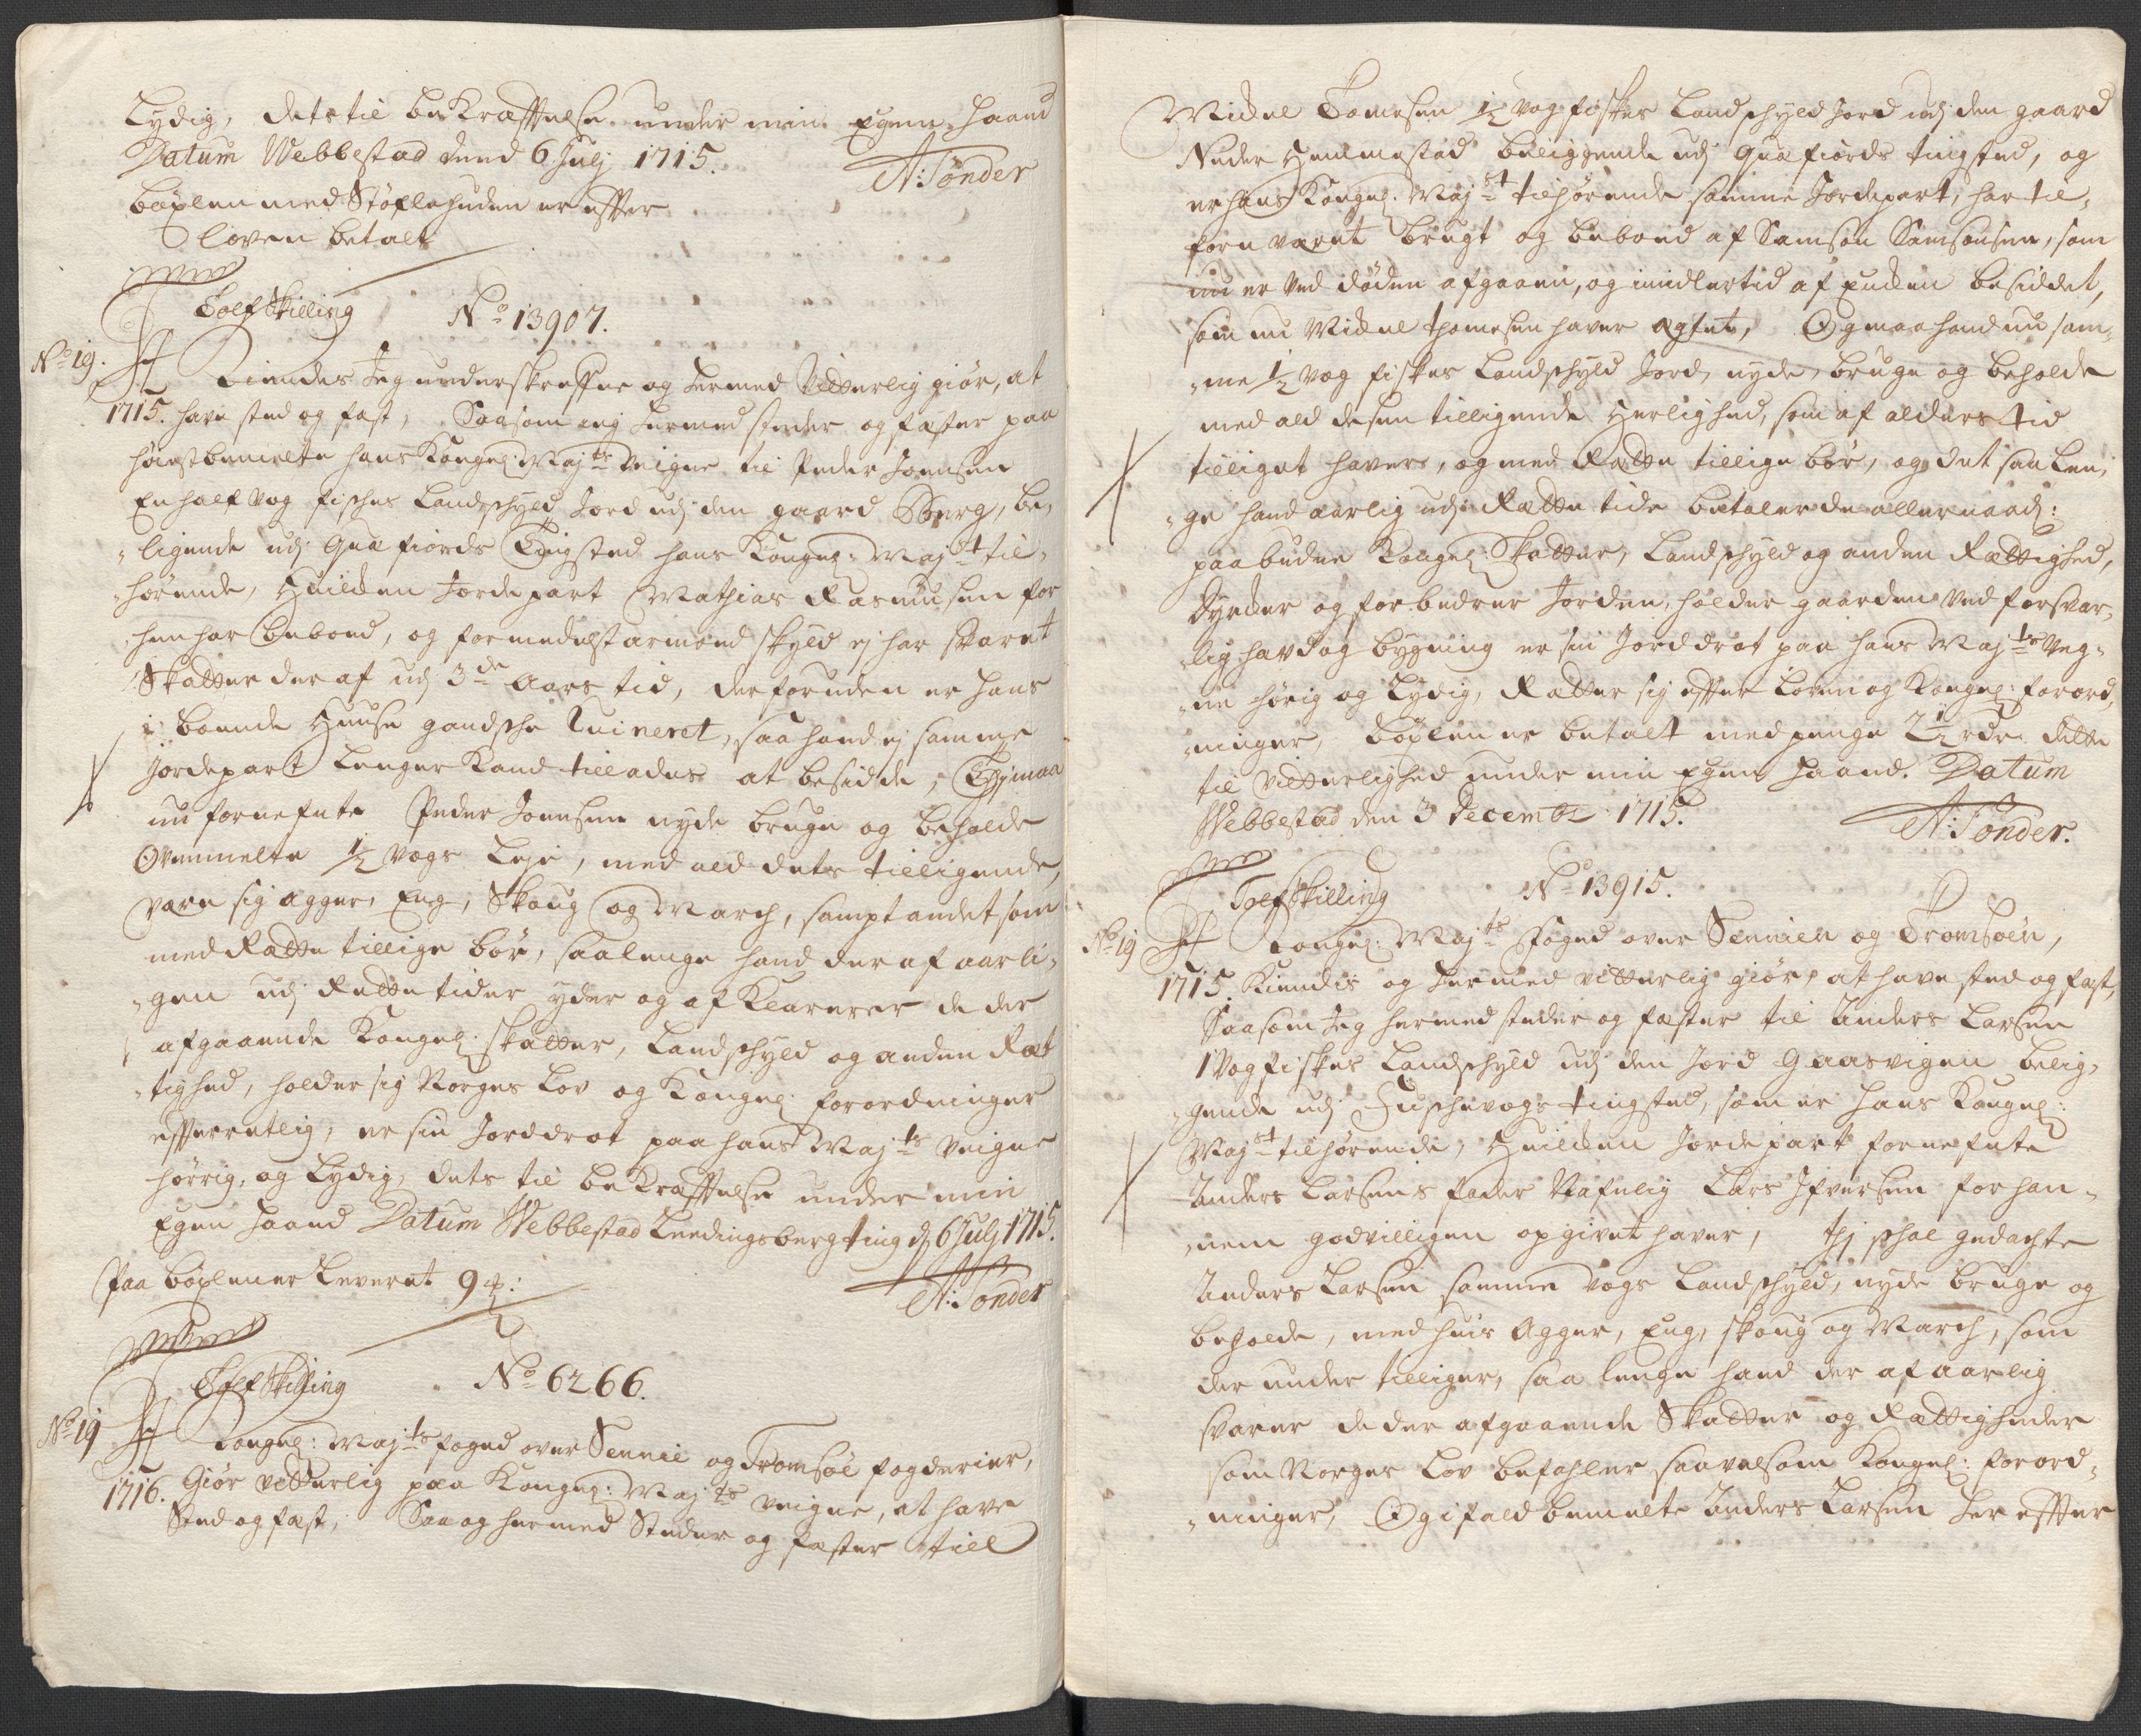 Lydig, dets til bekræfftelse under min Egen Haand
Datum Webbestad dend 6 Julj 1715.
A: Tönder
böxlen med Støflehuden er efter
loven betalt
Tolf Skilling No 13907.
No 19.
Kiendes Jeg underskreffne og hermed Vitterlig giör, at
1715. have sted og fæst, Saasom ieg hermed steder og fæster paa
høystbemelte hans Kongel: Majts Veigne til Peder Joensen
En half Vog fisches Landschyld Jord udj den gaard Berg, be-
ligende udj Quæfiords Tingsted hans Kongel: Majst til-
hörende, Huilcken Jordepart Mathias Rasmusen for
hen har beboed, og formedelst armoed skyld ej har svaret
Skatter der af udj 3de Aars tid, der foruden er hans
i boende Huuse gandsche Ruineret, saa hand ej samme
Jordepart lenger kand tillades at besidde, Thj maa
nu fornefnte Peder Joensen nyde bruge og beholde
Ovenmelte 1/2 vogs Leje, med ald dets tilligende,
være sig agger, Eng, Skoug og March, sampt andet som
med Rætte tillige bör, saalenge hand der af aarli-
gen udj Rette tider yder og af Klarerer de der
afgaaende Kongel: skatter, Landschyld og anden Ræt
tighed, holder sig Norges Lov og Kongel: forordninger
efterretlig, er sin Jorddrot paa hans Majts Veigne
hörrig, og Lydig, dets til bekræfftelse under min
Egen Haand Datum Webbestad Leedingsberg ting d 6 Julj 1715.
Paa böxlen er Leveret 9
A: Tönder
Tolf Skilling No 6266.
No 19
Kongel: Majts foged over Sennie og Tromsöe fogderier,
1716. Giör vitterlig paa Kongel: Majts Veigne, at have
Sted og fæst, Saa og hermed Steder og fæster till
Michel Tomesen 1/2 vog fiskes Landschyld Jord udj den gaard
Neder Hemmestad beliggende udj Quæfiords tingsted, og
er hans Kongel: Majst tilhörende samme Jordepart, har til-
forn været brugt og beboed af Samson Samsonsen, som
nu er ved döden afgaaen, og imidlertid af Encken besiddet,
som nu Michel Thomesen haver ægtet, Og maa hand nu sam-
me 1/2 vog fiskes Landschyld Jord, nyde, bruge og beholde
med ald desen tilligende Herlighed, som af alders tid
tilligget haver, og med Rætte tillige bör, og det saa len-
ge hand aarlig udj Rætte tide betaler de allernaadj:
paabudne Kongel: Skatter, Landschyld og anden Rættighed,
dyrcker og forbedrer Jorden, holder gaarden ved forsvar-
lig hævd og bygning er sin Jorddrot paa hans Majts Veg-
ne hörig og Lydig, Retter sig efter Loven og Kongel: forord-
ninger, böxlen er betalt med penge 2 1/2 rdr. dette
til vitterlighed under min Egen Haand. Datum
Webbestad den 3 Decembr 1715.
A: Tönder.
Tolf Skilling No 13915.
No 19
Kongel: Majts Foged over Sennien og Tromsöen,
1715. Kiendis og hermed vitterlig giör, at have sted og fæst,
Saasom Jeg hermed steder og fæster til Anders Larsen
1 Vog fiskes Landschyld udj den Jord Gaasvigen belig-
gende udj Fuschevogs tingsted, som er hans Kongel:
Majst tilhörende, Huilcken Jordepart fornefnte
Anders Larsens fader Nafnlig Lars Ifversen for han-
nem godvilligen opgivet haver, thj schal gedachte
Anders Larsen samme Vogs Landschyld, nyde bruge og
beholde, med huis Agger, Eng, skoug og March, som
der under tilligger, saa lenge hand der af aarlig
svarer de der afgaaende Skatter og Rættigheder
som Norges Lov befahler saavelsom Kongel: forord-
ninger, Og ifald bemelte Anders Larsen her effter